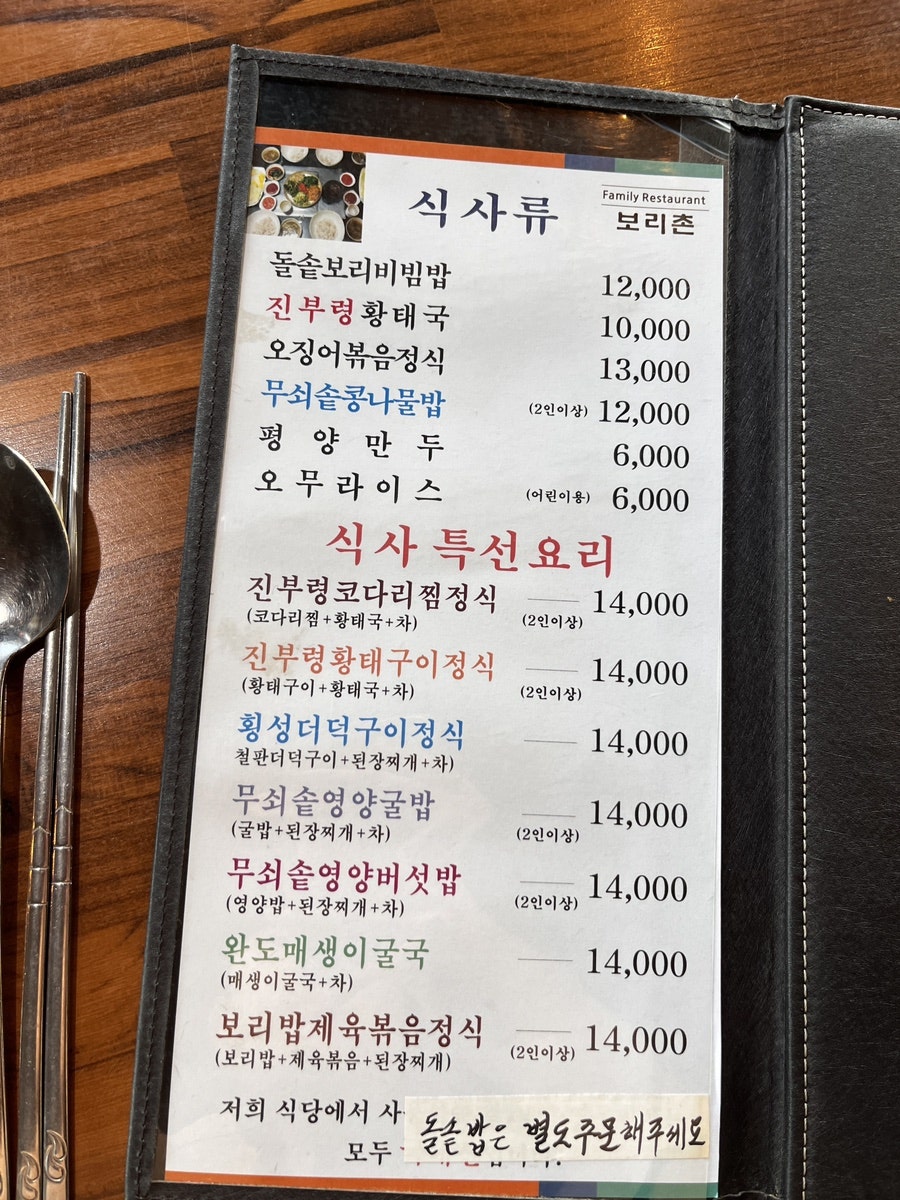 식사류
Family Restaurant
보리촌
돌솥보리비빔밥 12,000
진부령황태국 10,000
오징어볶음정식 13,000
무쇠솥콩나물밥 (2인이상) 12,000
평양만두 6,000
오무라이스 (어린이용) 6,000
식사 특선요리
진부령코다리찜정식 14,000
(코다리찜+황태국+차) (2인이상)
진부령황태구이정식 14,000
(황태구이+황태국+차) (2인이상)
횡성더덕구이정식 14,000
철판더덕구이+된장찌개+차)
무쇠솥영양굴밥 14,000
(굴밥+된장찌개+차) (2인이상)
무쇠솥영양버섯밥 14,000
(영양밥+된장찌개+차) (2인이상)
완도매생이굴국 14,000
(매생이굴국+차)
보리밥제육볶음정식 14,000
(보리밥+제육볶음+된장찌개) (2인이상)
저희 식당에서 사
돌솥밥은 별도주문해주세요
모두